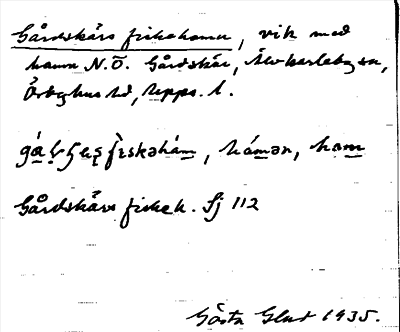 Gårdskärs fiskehamn, vik med
hamn N.Ö. Gårdskär, Älvkarleby sn,
Örbyhus hd, Upps. l.
fiskəhám, hámən, ham
Gårdskärs fiskeh. Sj 112
Gösta Glas 1935.